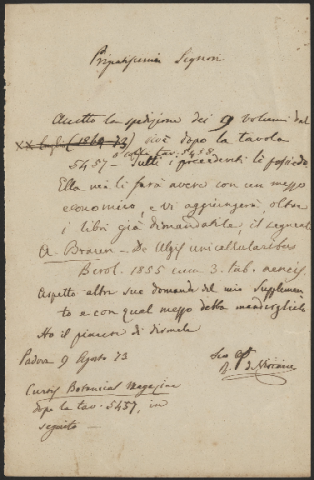 Pregiatissimi Signori
Aspetto la spedizione dei 9 volumi dal
XX Luglio (1864-73) cioè dopo la tavola
o dalla tav. 5458
5457 — Tutti i precedenti li possiedo
Ella me li farà avere con un mezzo
economico, e vi aggiungerà, oltre
i libri già dimandatile, il seguente
A. Braun — De Algis unicellularibus
Berol. 1855 cum 3. tab. aeneis.
Aspetto altre sue domande del mio Supplemen
to e con qual mezzo debbo mandarglielo
Ho il piacere di dirmele
Padova 9 Agosto 73
Curtis Botanical Magazine
dopo la tav. 5457, in
seguito —